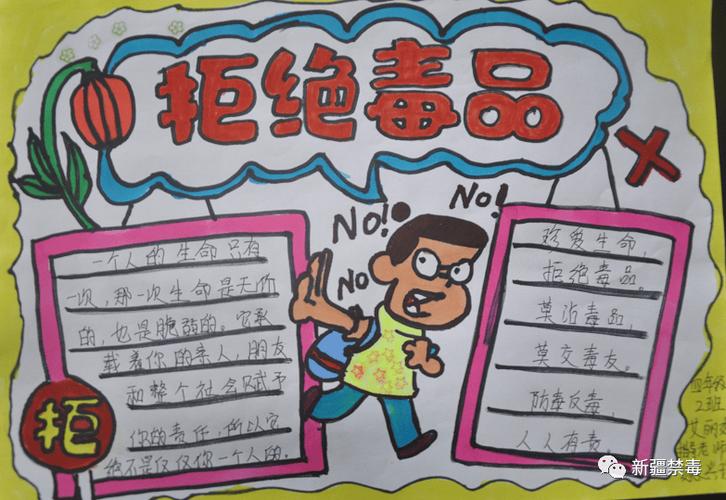 拒绝毒品
No!
No!
No
一个人的生命只有
一次，那一次生命是无价
的，也是脆弱的。它承
载着你的亲人，朋友
和整个社会赋予
你的责任，所以它
绝不是仅仅你一个人的。
拒
珍爱生命，
拒绝毒品。
莫沾毒品，
莫交毒友。
防毒反毒，
人人有责。
四年级
2班
新疆禁毒